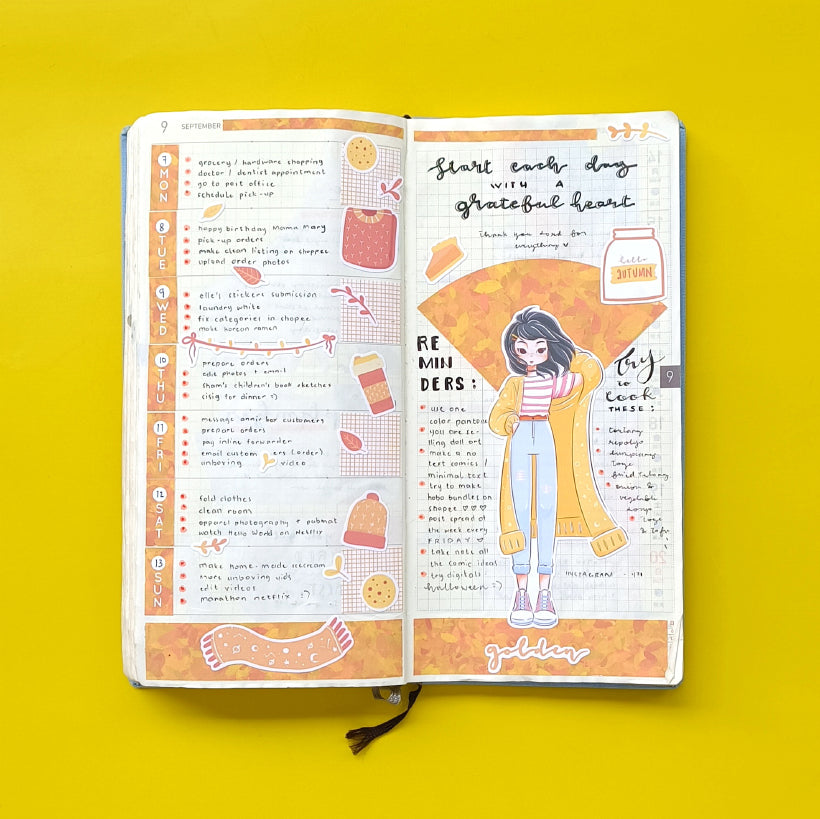 9 SEPTEMBER
7
MON
grocery / hardware shopping
doctor / dentist appointment
go to post office
schedule pick-up
8
TUE
happy birthday Mama Mary
pick-up orders
make clean listing on shopee
upload order photos
9
WED
elle's stickers submission
laundry white
fix categories in shopee
make korean ramen
10
THU
prepare orders
edit photos + email
sham's children's book sketches
sisig for dinner :)
11
FRI
message annie bar customers
prepare orders
pay inline forwarder
email custom ers (order)
unboxing video
12
SAT
fold clothes
clean room
apparel photography + pubmat
watch Hello World on Netflix
13
SUN
make home-made icecream
more unboxing vids
edit videos
marathon netflix :)
start each day
WITH A
grateful heart
Thank you Lord for
everything ♡
hello
AUTUMN
RE
MIN
DERS:
use one
color pantone
you are se-
lling doll art
make a no
text comics /
minimal text
try to make
hobo bundles on
shopee ♡♡♡
post spread of
the week every
FRIDAY ♡
take note all
the comic ideas
try digital!
halloween :)
try
to
cook
THESE:
repolyo
lumpiang
toge
onion &
vegetable
toge
& tofu
INSTAGRAM
9
golden